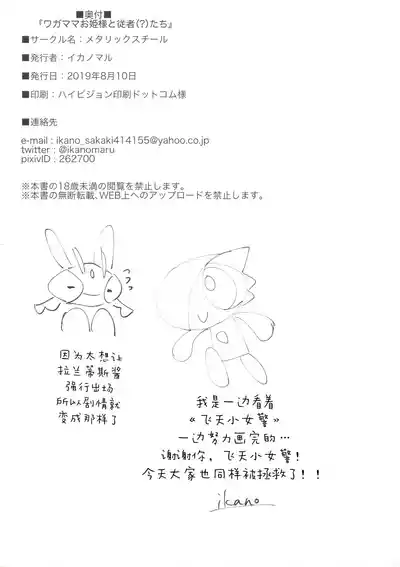 ■奥付■
『ワガママお姫様と従者(?)たち』
■サークル名：メタリックスチール
■発行者：イカノマル
■発行日：2019年8月10日
■印刷：ハイビジョン印刷ドットコム様
■連絡先
e-mail : ikano_sakaki414155@yahoo.co.jp
twitter : @ikanomaru
pixivID : 262700
※本書の18歳未満の閲覧を禁止します。
※本書の無断転載、WEB上へのアップロードを禁止します。
フフッ
因为太想让
拉兰蒂斯酱
强行出场
所以剧情就
变成那样了
我是一边看着
《飞天小女警》
一边努力画完的…
谢谢你，飞天小女警！
今天大家也同样被拯救了！！
ikano